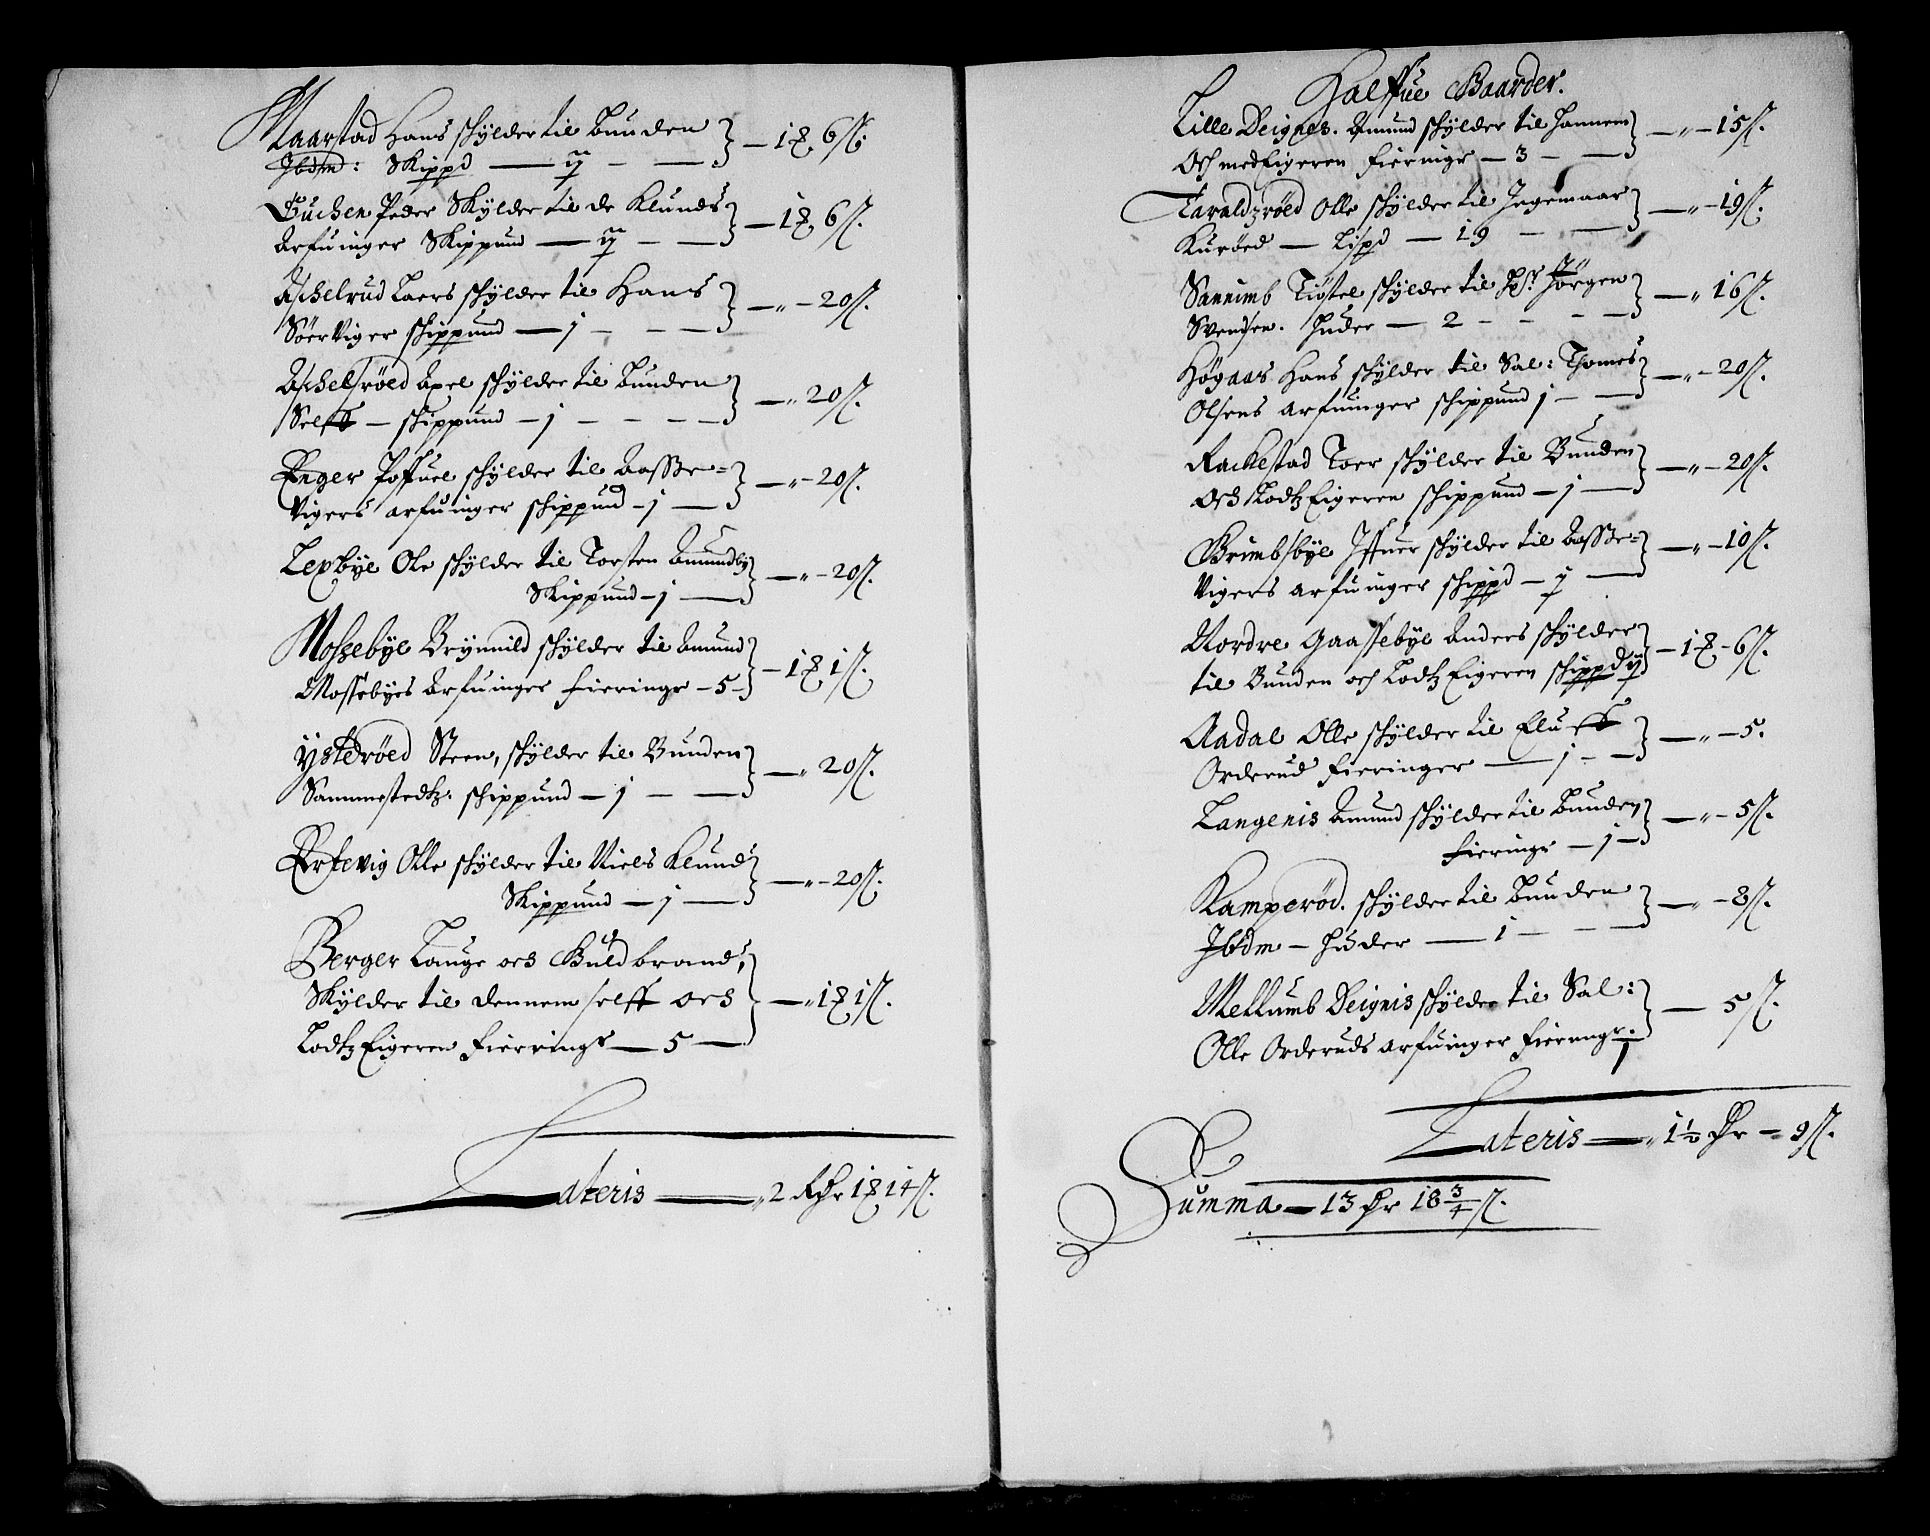 Maarstad Hans schÿlder til Bunden
Ibdm: Skippd — ij — — 1 ₰ 6 ſſ.
Buchen Peder Skÿlder til de Klunds
arfuinger Skippund — ij — — 1 ₰ 6 ſſ.
Aschelrud Laers schÿlder til Hans
Sörviger schippund — j — — „ — 20 ſſ.
Aschelsröed Axel schÿlder til Bunden
Selff — schippund — j — — „ 20 ſſ.
Enger Poffuel schÿlder til Aasse=
vigers arfuinger schippund — j — — „ — 20 ſſ.
Lexbÿe Ole schÿlder til Torsten Amundbÿ
Skippund — j — — „ — 20 ſſ.
Mossebÿe Brÿnnild schÿlder til Amund
Mossebÿes Arfuinger fieringr — 5 — 1 ₰ 1 ſſ.
Ÿsteröed Steen, schÿlder til Bunden
Sammestedtz: schippund — j — — „ 20 ſſ.
Ertevig Olle schÿlder til Niels Klund
Skippund — j — — „ — 20 ſſ.
Berger Lauge och Guldbrand,
Skÿlder til dennem selff och
Lodtz Eigeren fieringr — 5 — — „ 1 ₰ 1 ſſ.
Lateris — „ 2 Rdr 1 ₰ 14 ſſ.
Halffue Gaarder.
Lille Deignes. Amund schÿlder til hannem
och medeigeren fieringr — 3 — — „ — 15 ſſ.
Haraldzröed Olle schÿlder til Ingemaar
Kuröed — Lispd — 19 — — „ — 19 ſſ.
Sannumb Tiøstel schÿlder til Hr: Jörgen
Svendsen. Huder — 2 — — „ 16 ſſ.
Högaas Hans schÿlder til Sal: Thomes
Olsens arfuinger schippund j — — „ — 20 ſſ.
Rackestad Toer schÿlder til Bunden
och Lodtz Eigeren schippund — j — — „ — 20 ſſ.
Grimbsbÿe Iffuer schÿlder til Aasse=
vigers arfuinger schippd — ɉ — — „ — 10 ſſ.
Nordre Gaassebÿe Anders schÿlder
til Bunden och Lodtz Eigeren schippd ij — 1 ₰ — 6 ſſ.
Aadal Olle schÿlder til Eluff
Orderud fieringer — j — — „ — 5.
Langenis Amund schÿlder til Bunden
fieringr — j — — „ — 5 ſſ.
Kamperöd. schÿlder til Bunden
Ibdm — Huder — 1 — — „ — 8 ſſ.
Mellumb Deignis schÿlder til Sal:
Olle Orderuds arfuinger fierungr. 1 — 5 ſſ.
Lateris — „ 1½ Dr — 9 ſſ.
Summa — 13 Dr 18 3/4 ſſ.